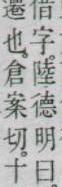 借字。陸德明曰。
還也。倉案切。十